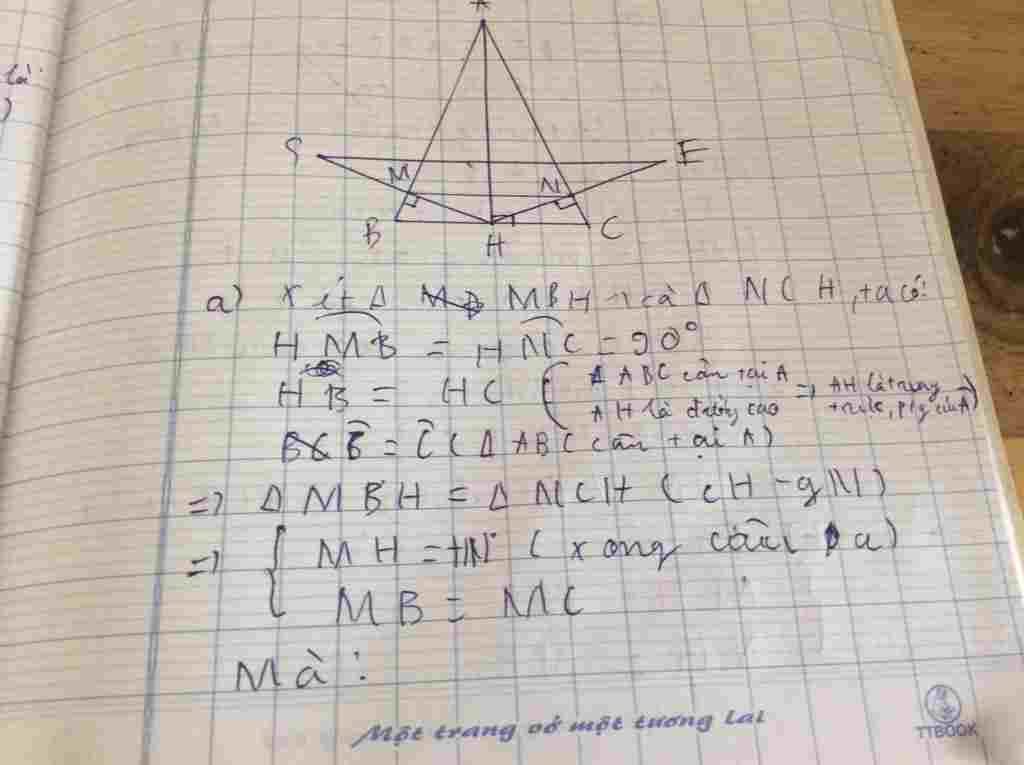 là
)
A
E
M
N
B
H
C
a) Xét Δ MBH và Δ NCH, ta có:
HMB = HNC = 90°
HB = HC ( Δ ABC cân tại A
AH là đường cao => AH là trung
trực, p/g của A)
B = C (Δ ABC cân tại A)
=> Δ MBH = Δ NCH (cH-gN)
=> { MH = HN (xong câu a)
MB = MC
Mà :
Một trang vở một tương lai
TTBOOK